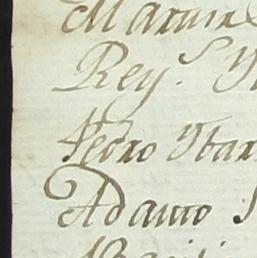 Martin
Rey.s Y
Pedro Ybar
Adamo